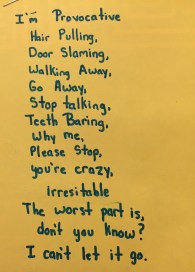 I'm Provocative
Hair Pulling,
Door Slaming,
Walking Away,
Go Away,
Stop talking,
Teeth Baring,
Why me,
Please Stop,
you're crazy,
Irresitable
The worst part is,
don't you know?
I can't let it go.